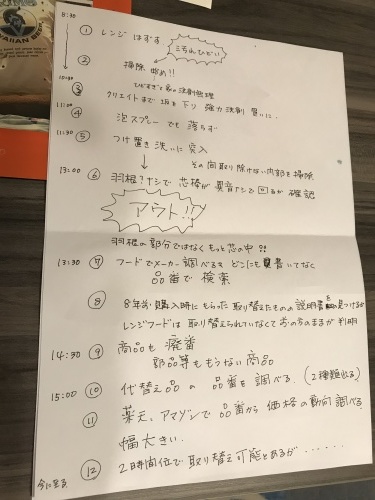 8:30
① レンジ はずす 汚れひどい
② 掃除 始め!!
10:30 ③ ひどすぎて家の洗剤無理
クリエイトまで 坂を下り 強力洗剤 買いに.
11:00 ④ 泡スプレー でも 落ちず
11:30 ⑤ つけ置き 洗いに 突入
↓ その間取り除けない内部を掃除
13:00 ⑥ 羽根?ナシで 芯棒が 異音ナシで 回るか 確認
アウト!!
羽根の部分ではなくもっと芯の中!!
13:30 ⑦ フードでメーカー調べるも どこにも書いてなく
品番で 検索
⑧ 8年前 購入時にもらった 取り替えたものの 説明書を 見つけるが
レンジフードは 取り替えられていなくて のままが 判明
14:30 ⑨ 商品も 廃番
部品等ももうない商品
15:00 ⑩ 代替え品の 品番を 調べる. (2種類出る)
⑪ 楽天、アマゾンで 品番から 価格の動向 調べる
幅大きい.
⑫ 2時間位で 取り替え可能とあるが ......
今に至る